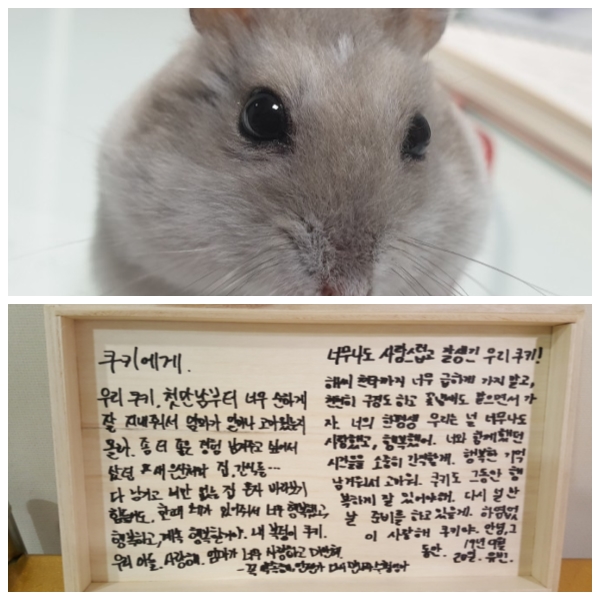 쿠키에게.
우리 쿠키, 첫만남부터 너무 순하게
잘 지내줘서 엄마가 얼마나 고마웠는지
몰라. 좀 더 많은 경험 남겨주고 싶어서
샀던 새 집, 간식들...
다 남기고 너만 없는 집 혼자 바라보기
힘들어도, 쿠키가 있어줘서 너무 행복했고,
행복하고, 계속 행복할거야. 내 복덩이 쿠키.
우리 아들. 사랑해. 엄마가 너무 사랑하고
너무나도 사랑스럽고 잘생긴 우리 쿠키!
너무 급하게 가지 말고,
천천히 구경도 하고 꽃냄새도 맡으면서 가
자. 너의 한평생 우리는 널 너무나도
사랑했고, 행복했어. 너와 함께했던
시간들을 소중히 간직할게. 행복한 기억
남겨줘서 고마워. 쿠키도 그동안 행
복하게 잘 있어야해. 다시 만날
날 준비를 하고 있을게. 하염없
이 사랑해 쿠키야. 안녕, 그
동안. 19년 9월
20일.